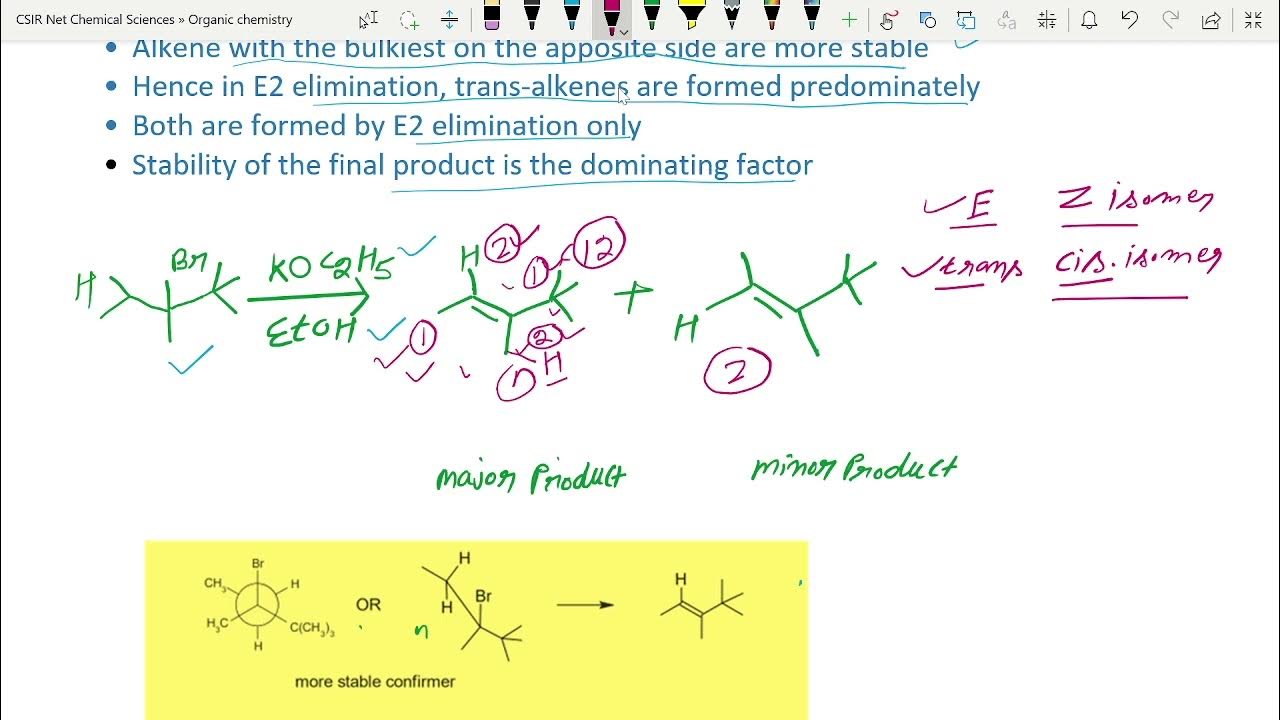 CSIR Net Chemical Sciences » Organic chemistry
• Alkene with the bulkiest on the apposite side are more stable
• Hence in E2 elimination, trans-alkenes are formed predominately
• Both are formed by E2 elimination only
• Stability of the final product is the dominating factor
E Z isomer
trans cis. isomer
H Br KOC2H5 H 2 1 12
EtOH 1 2 H + H 2
major Product minor Product
Br
CH3 H
H3C C(CH3)3
H
OR
H
H Br
n
H
more stable confirmer